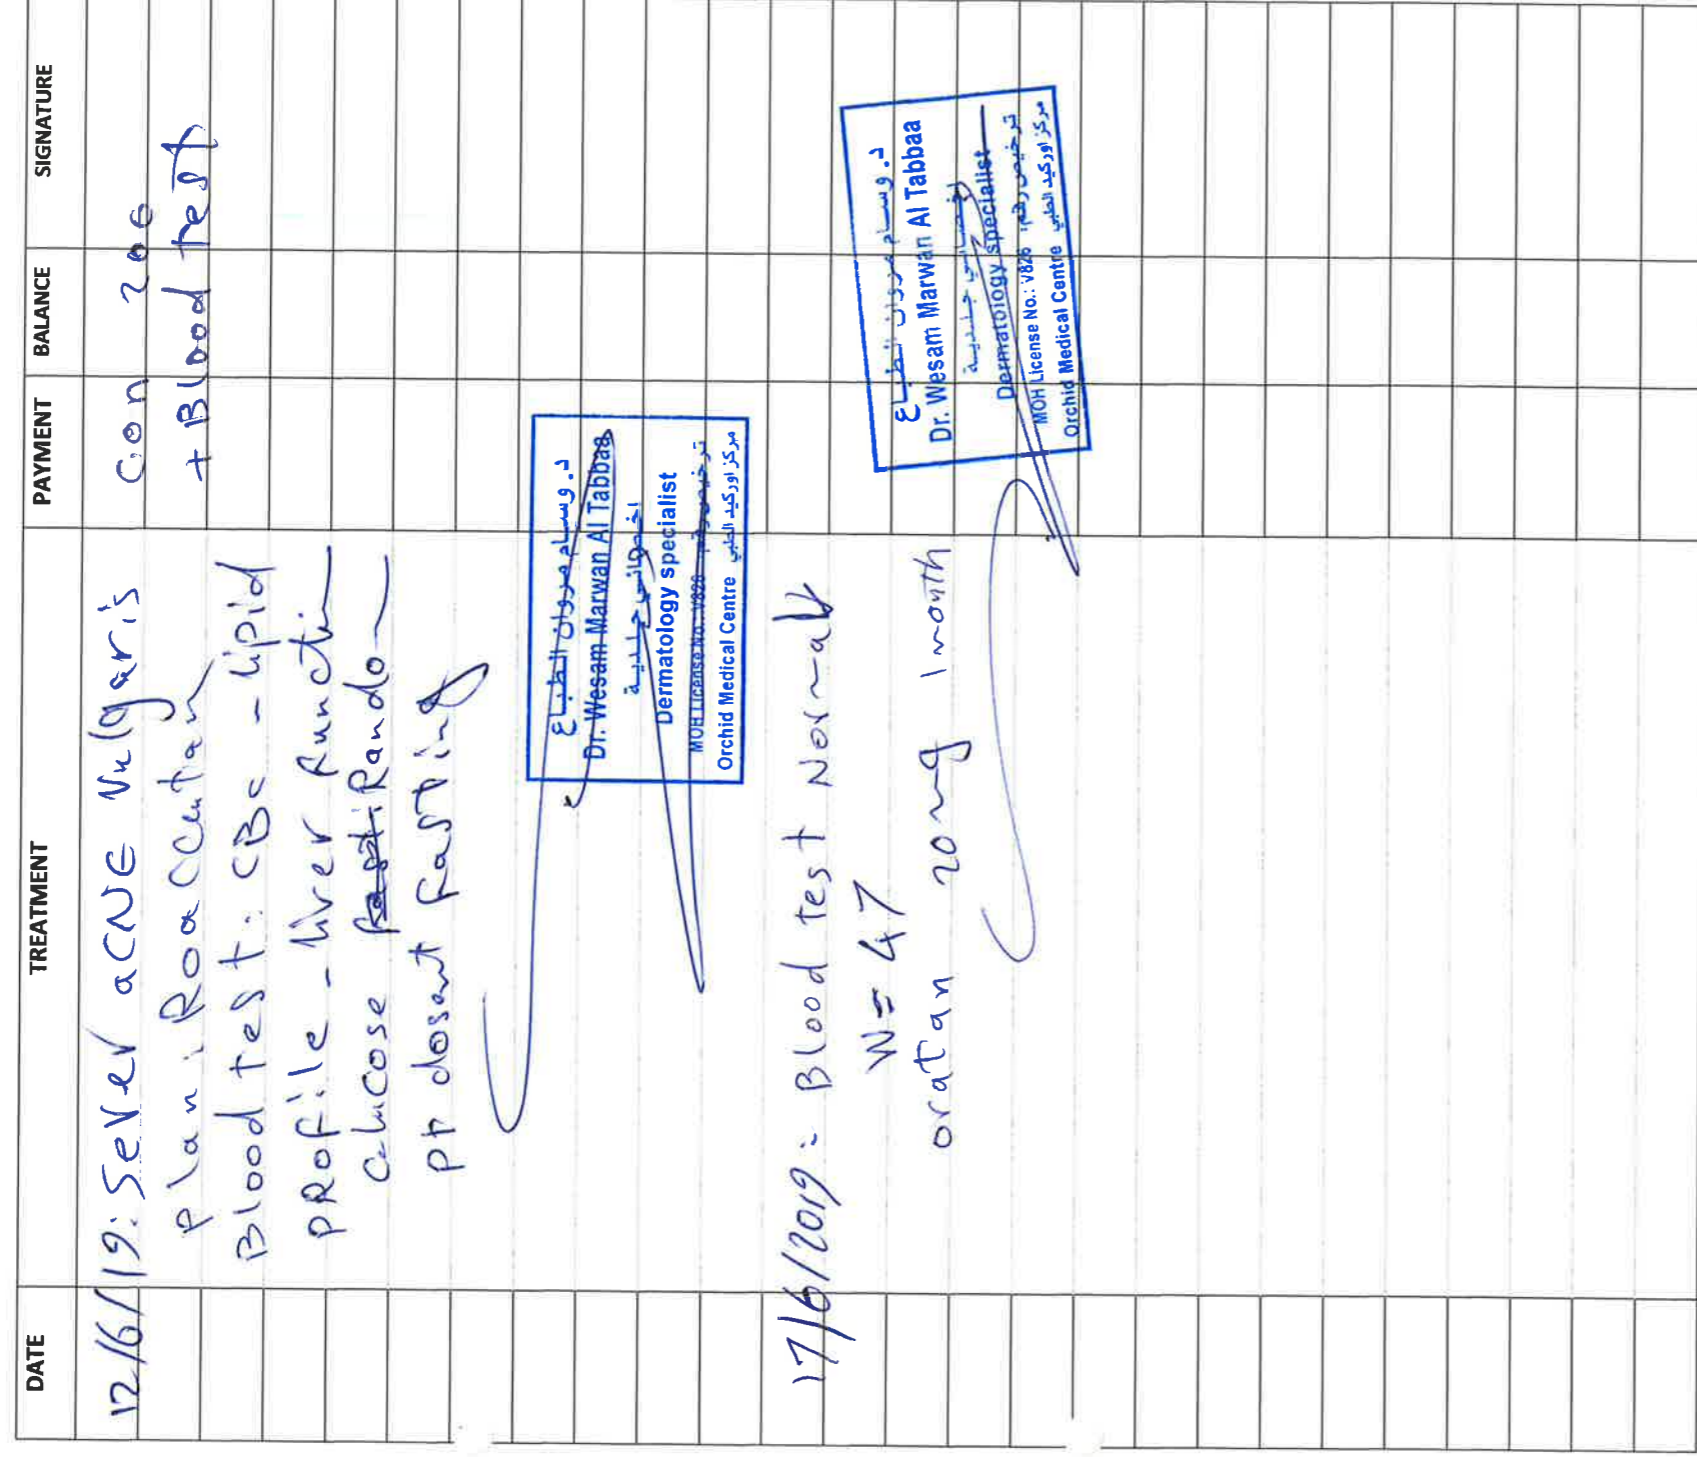 DATE TREATMENT PAYMENT BALANCE SIGNATURE
12/6/19: Sever aCNE Vulgaris Con 200
Plan: Roaccutan + Blood test
Blood test: CBc - lipid
PRofile - liver function
Glucose Random
Pt dosant fasting
د. وسام مروان الطباع
Dr. Wesam Marwan Al Tabbaa
اخصائي جلدية
Dermatology specialist
ترخيص رقم:
MOH License No.: V826
Orchid Medical Centre مركز اوركيد الطبي
17/6/2019: Blood test Normal
W = 47
oratan 20mg 1 month
د. وسام مروان الطباع
Dr. Wesam Marwan Al Tabbaa
اخصائي جلدية
Dermatology specialist
MOH License No.: V826 ترخيص رقم:
Orchid Medical Centre مركز اوركيد الطبي